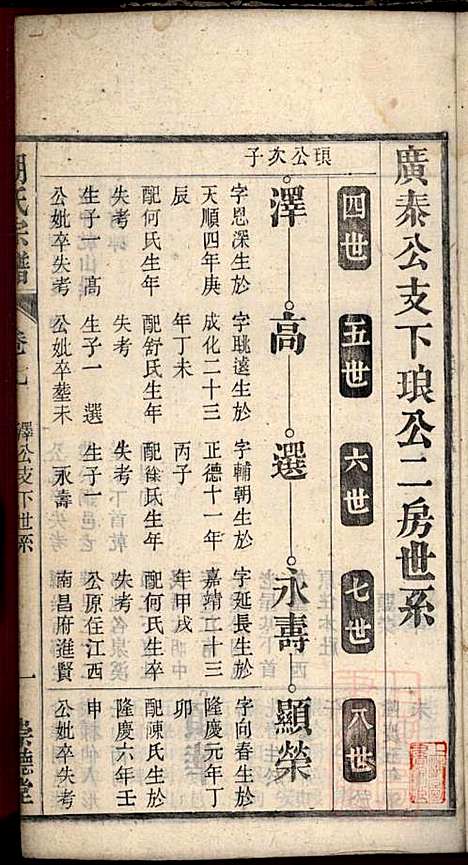 廣泰公支下琅公二房世系
四世
五世
六世
七世
八世
琅公次子
澤
高
選
永壽
顯榮
字恩深生於
天順四年庚
辰
配何氏生年
失考
生子一 高
公妣卒失考
字眺遠生於
成化二十三
年丁未
配舒氏生年
失考
生子一 選
公妣卒塟未
字輔朝生於
正德十一年
丙子
配徐氏生年
失考
生子一
永壽
字延長生於
嘉靖二十三
年甲戌
配何氏生卒
失考
公原住江西
南昌府進賢
字向春生於
隆慶元年丁
卯
配陳氏生於
隆慶六年壬
申
公妣卒失考
胡氏宗譜
卷七
澤公支下世系
一
崇德堂